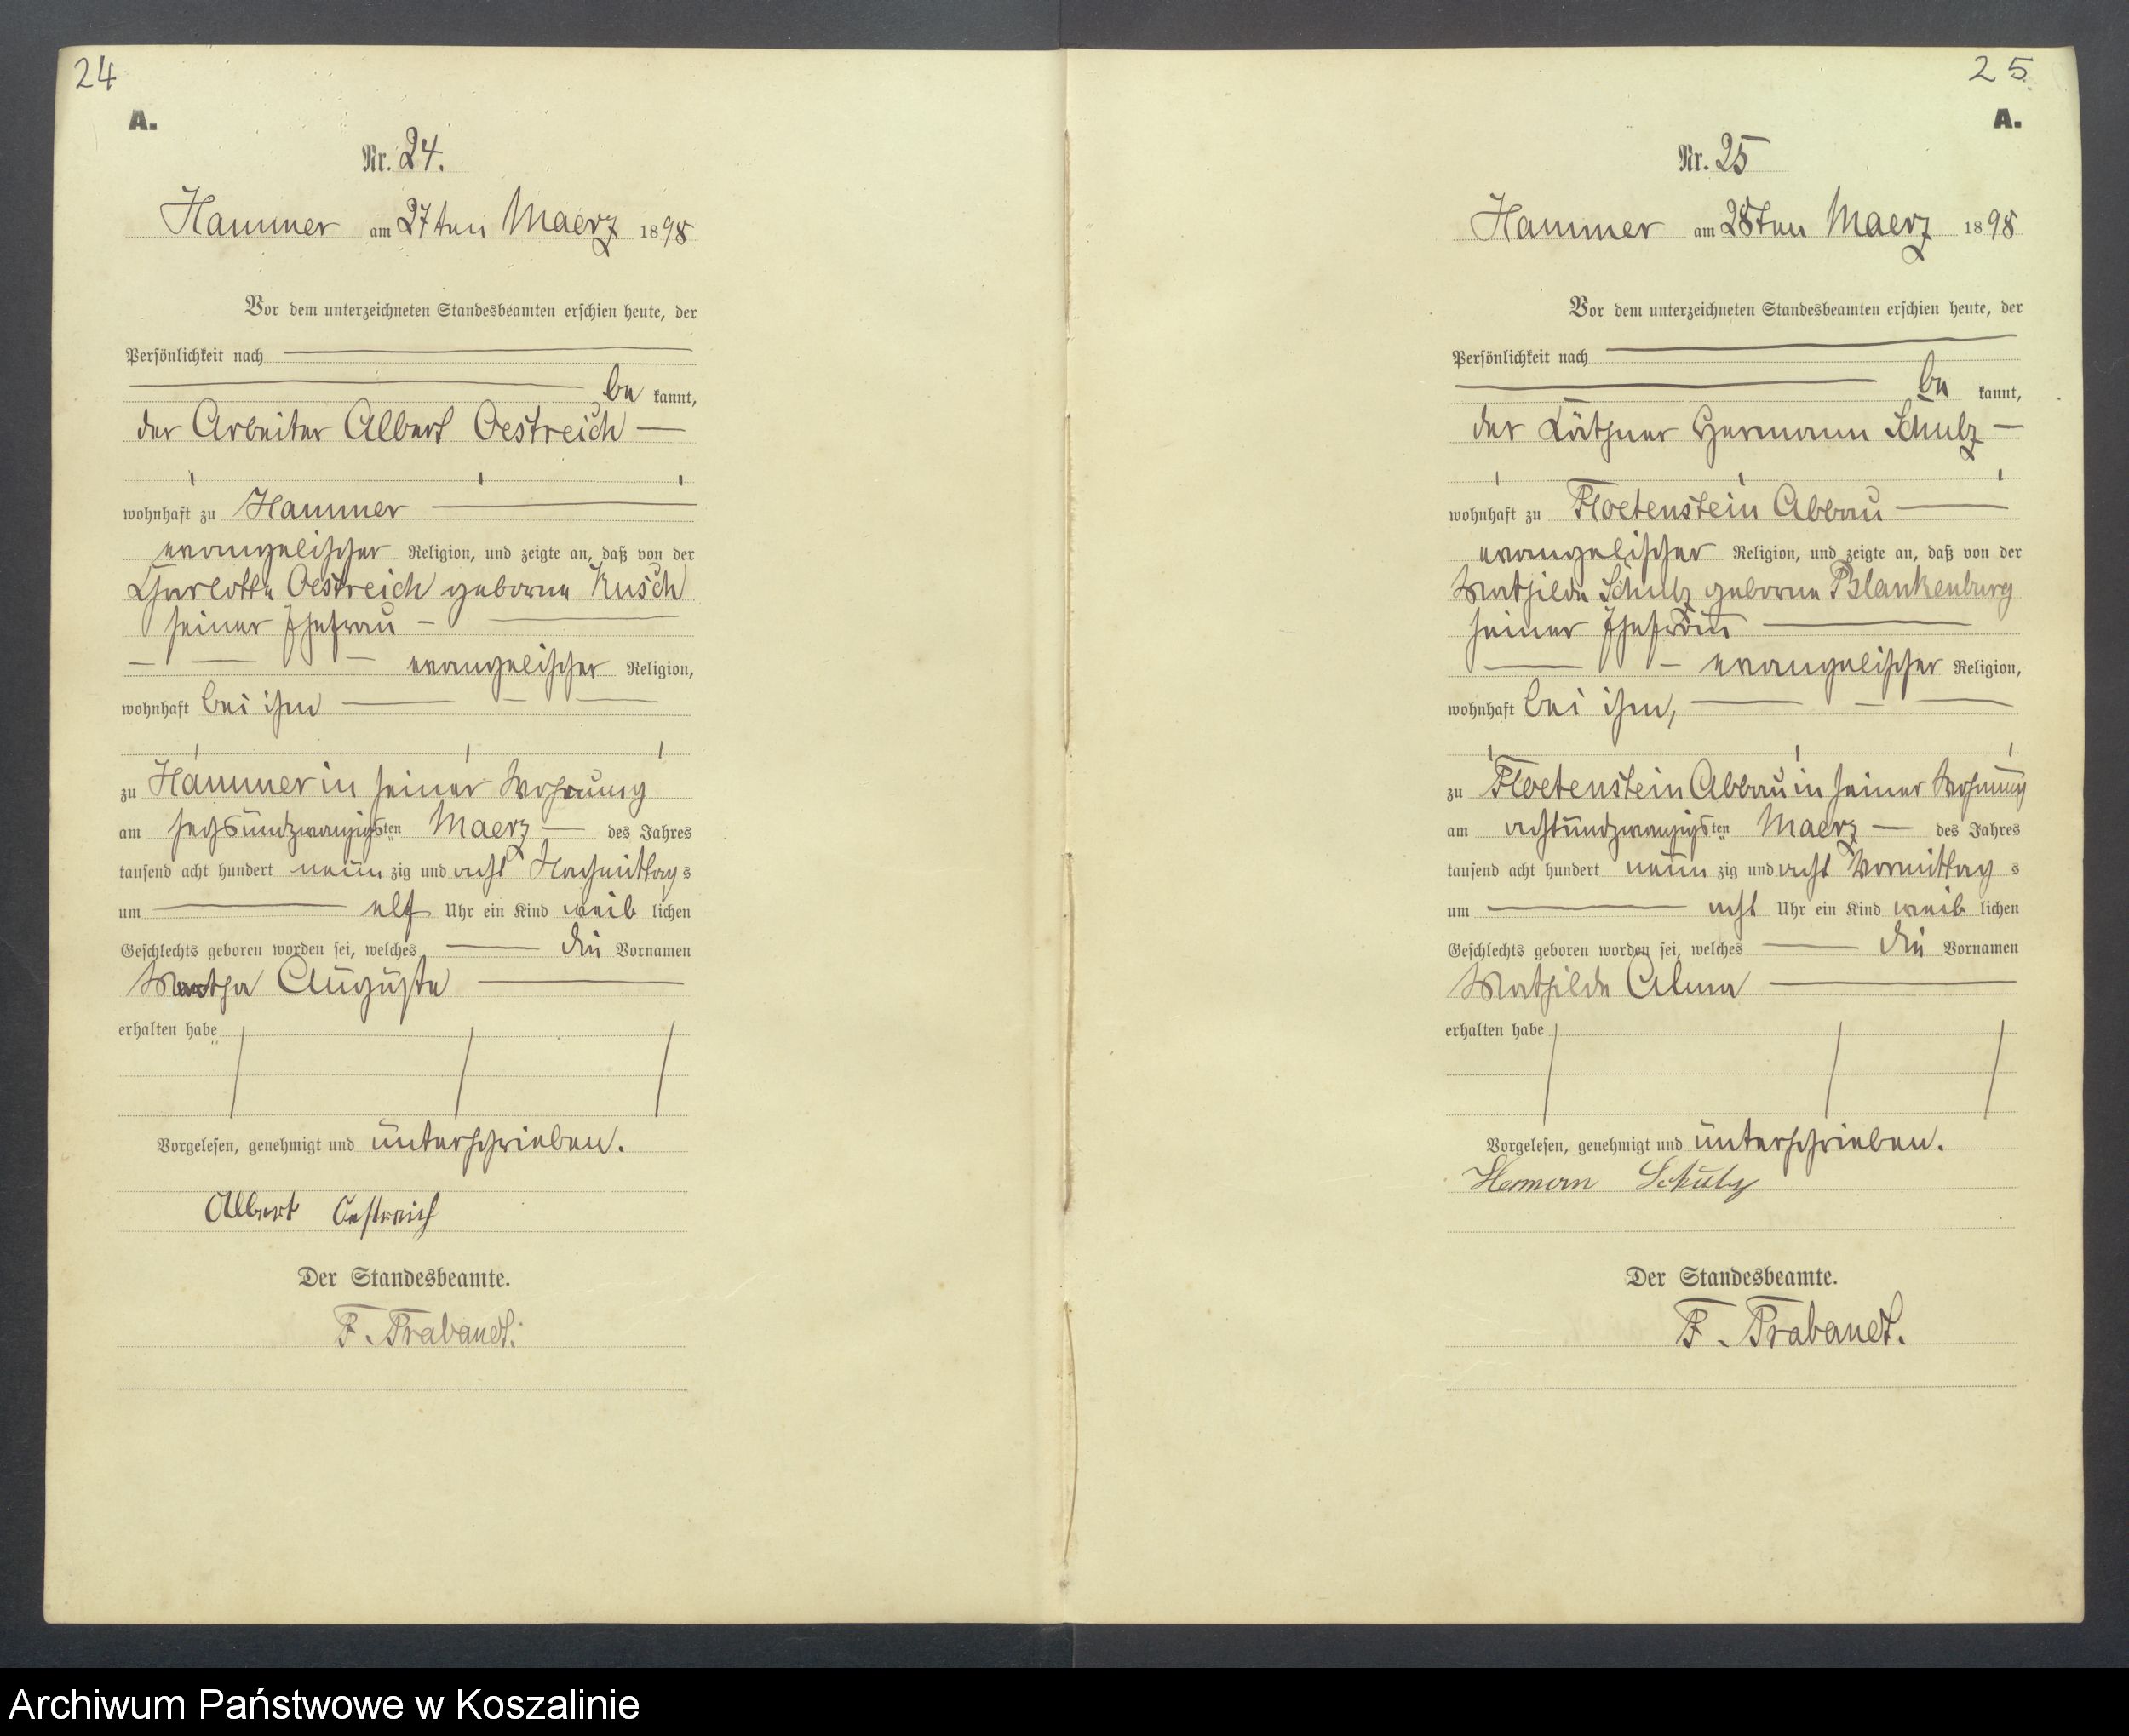 24
A.
Nr. 24.
Hammer am 27ten Maerz 1898
Vor dem unterzeichneten Standesbeamten erschien heute, der
Persönlichkeit nach
be kannt,
der Arbeiter Albert Oestreich
wohnhaft zu Hammer
evangelischer Religion, und zeigte an, daß von der
Charlotte Oestreich geborne Kusch
seiner Ehefrau
evangelischer Religion,
wohnhaft bei ihm
zu Hammer in seiner Wohnung
am sechsundzwanzigsten Maerz des Jahres
tausend acht hundert neun zig und acht Nachmittags
um elf Uhr ein Kind weib lichen
Geschlechts geboren worden sei, welches die Vornamen
Martha Auguste
erhalten habe
Vorgelesen, genehmigt und unterschrieben.
Albert Oestreich
Der Standesbeamte.
F. Trabandt.
25
A.
Nr. 25
Hammer am 28ten Maerz 1898
Vor dem unterzeichneten Standesbeamten erschien heute, der
Persönlichkeit nach
be kannt,
der Käthner Hermann Schulz
wohnhaft zu Floetenstein Abbau
evangelischer Religion, und zeigte an, daß von der
Mathilde Schulz geborne Blankenburg
seiner Ehefrau
evangelischer Religion,
wohnhaft bei ihm,
zu Floetenstein Abbau in seiner Wohnung
am achtundzwanzigsten Maerz des Jahres
tausend acht hundert neun zig und acht Vormittag s
um acht Uhr ein Kind weib lichen
Geschlechts geboren worden sei, welches die Vornamen
Mathilde Alma
erhalten habe
Vorgelesen, genehmigt und unterschrieben.
Hermann Schulz
Der Standesbeamte.
F. Trabandt.
Archiwum Państwowe w Koszalinie